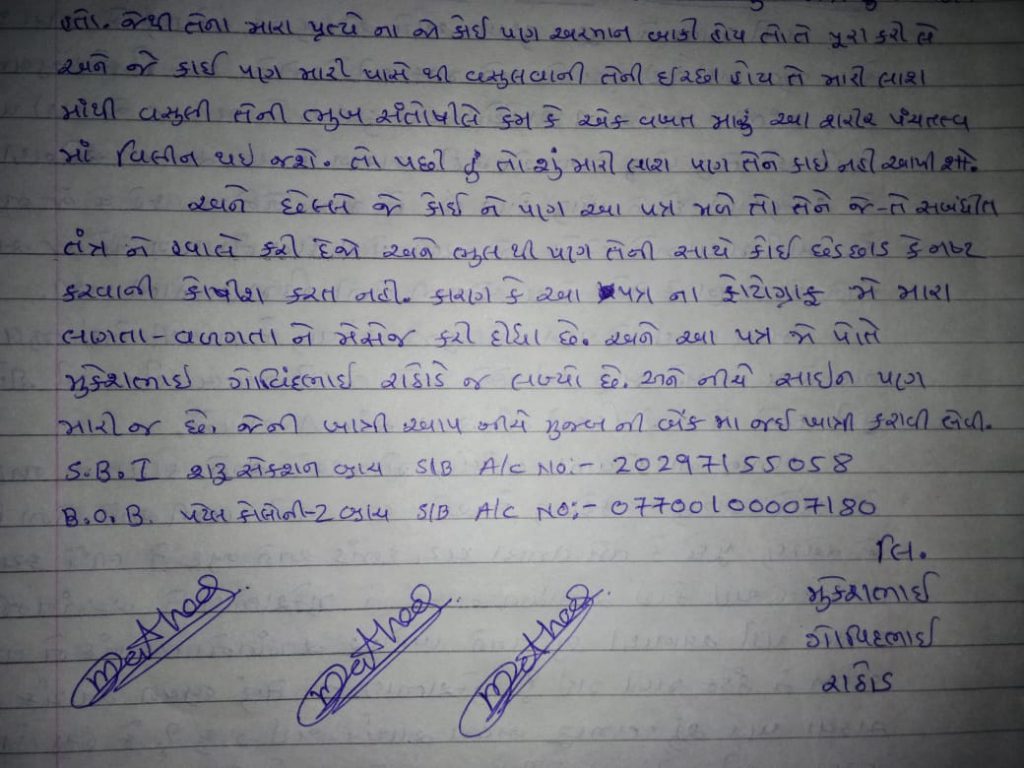 હતો. જેથી તેના મારા પ્રત્યે ના જે કોઈ પણ અરમાન બાકી હોય તો તે પૂરા કરી લે
અને જે કાઈ પણ મારી પાસે થી વસુલવાની તેની ઈચ્છા હોય તે મારી લાશ
માંથી વસુલી તેની ભુખ સંતોષીલે કેમ કે એક વખત મારૂં આ શરીર પંચતત્વ
માં વિલીન થઈ જશે. તો પછી હું તો શું મારી લાશ પણ તેને કાઈ નહી આપી શકે.
અને છેલ્લે જે કોઈ ને પણ આ પત્ર મળે તો તેને જે-તે સબંધીત
તંત્ર ને હવાલે કરી દેજો અને ભુલ થી પણ તેની સાથે કોઈ છેડછાડ કે નષ્ટ
કરવાની કોષીશ કરતા નહી. કારણ કે આ પત્ર ના ફોટોગ્રાફ મે મારા
લાગતા-વળગતા ને મેસેજ કરી દીધા છે. અને આ પત્ર મે પોતે
મુકેશભાઈ ગોવિંદભાઈ રાઠોડે જ લખ્યો છે. અને નીચે સાઈન પણ
મારી જ છે. જેની ખાત્રી આપ નીચે મુજબ ની બેંક મા જઈ ખાત્રી કરાવી લેવી.
S.B.I શરૂ સેકશન બ્રાંચ S/B A/c No:- 20297155058
B.O.B. પટેલ કોલોની-2 બ્રાંચ S/B A/c No:- 07700100007180
લિ.
મુકેશભાઈ
ગોવિંદભાઈ
રાઠોડ